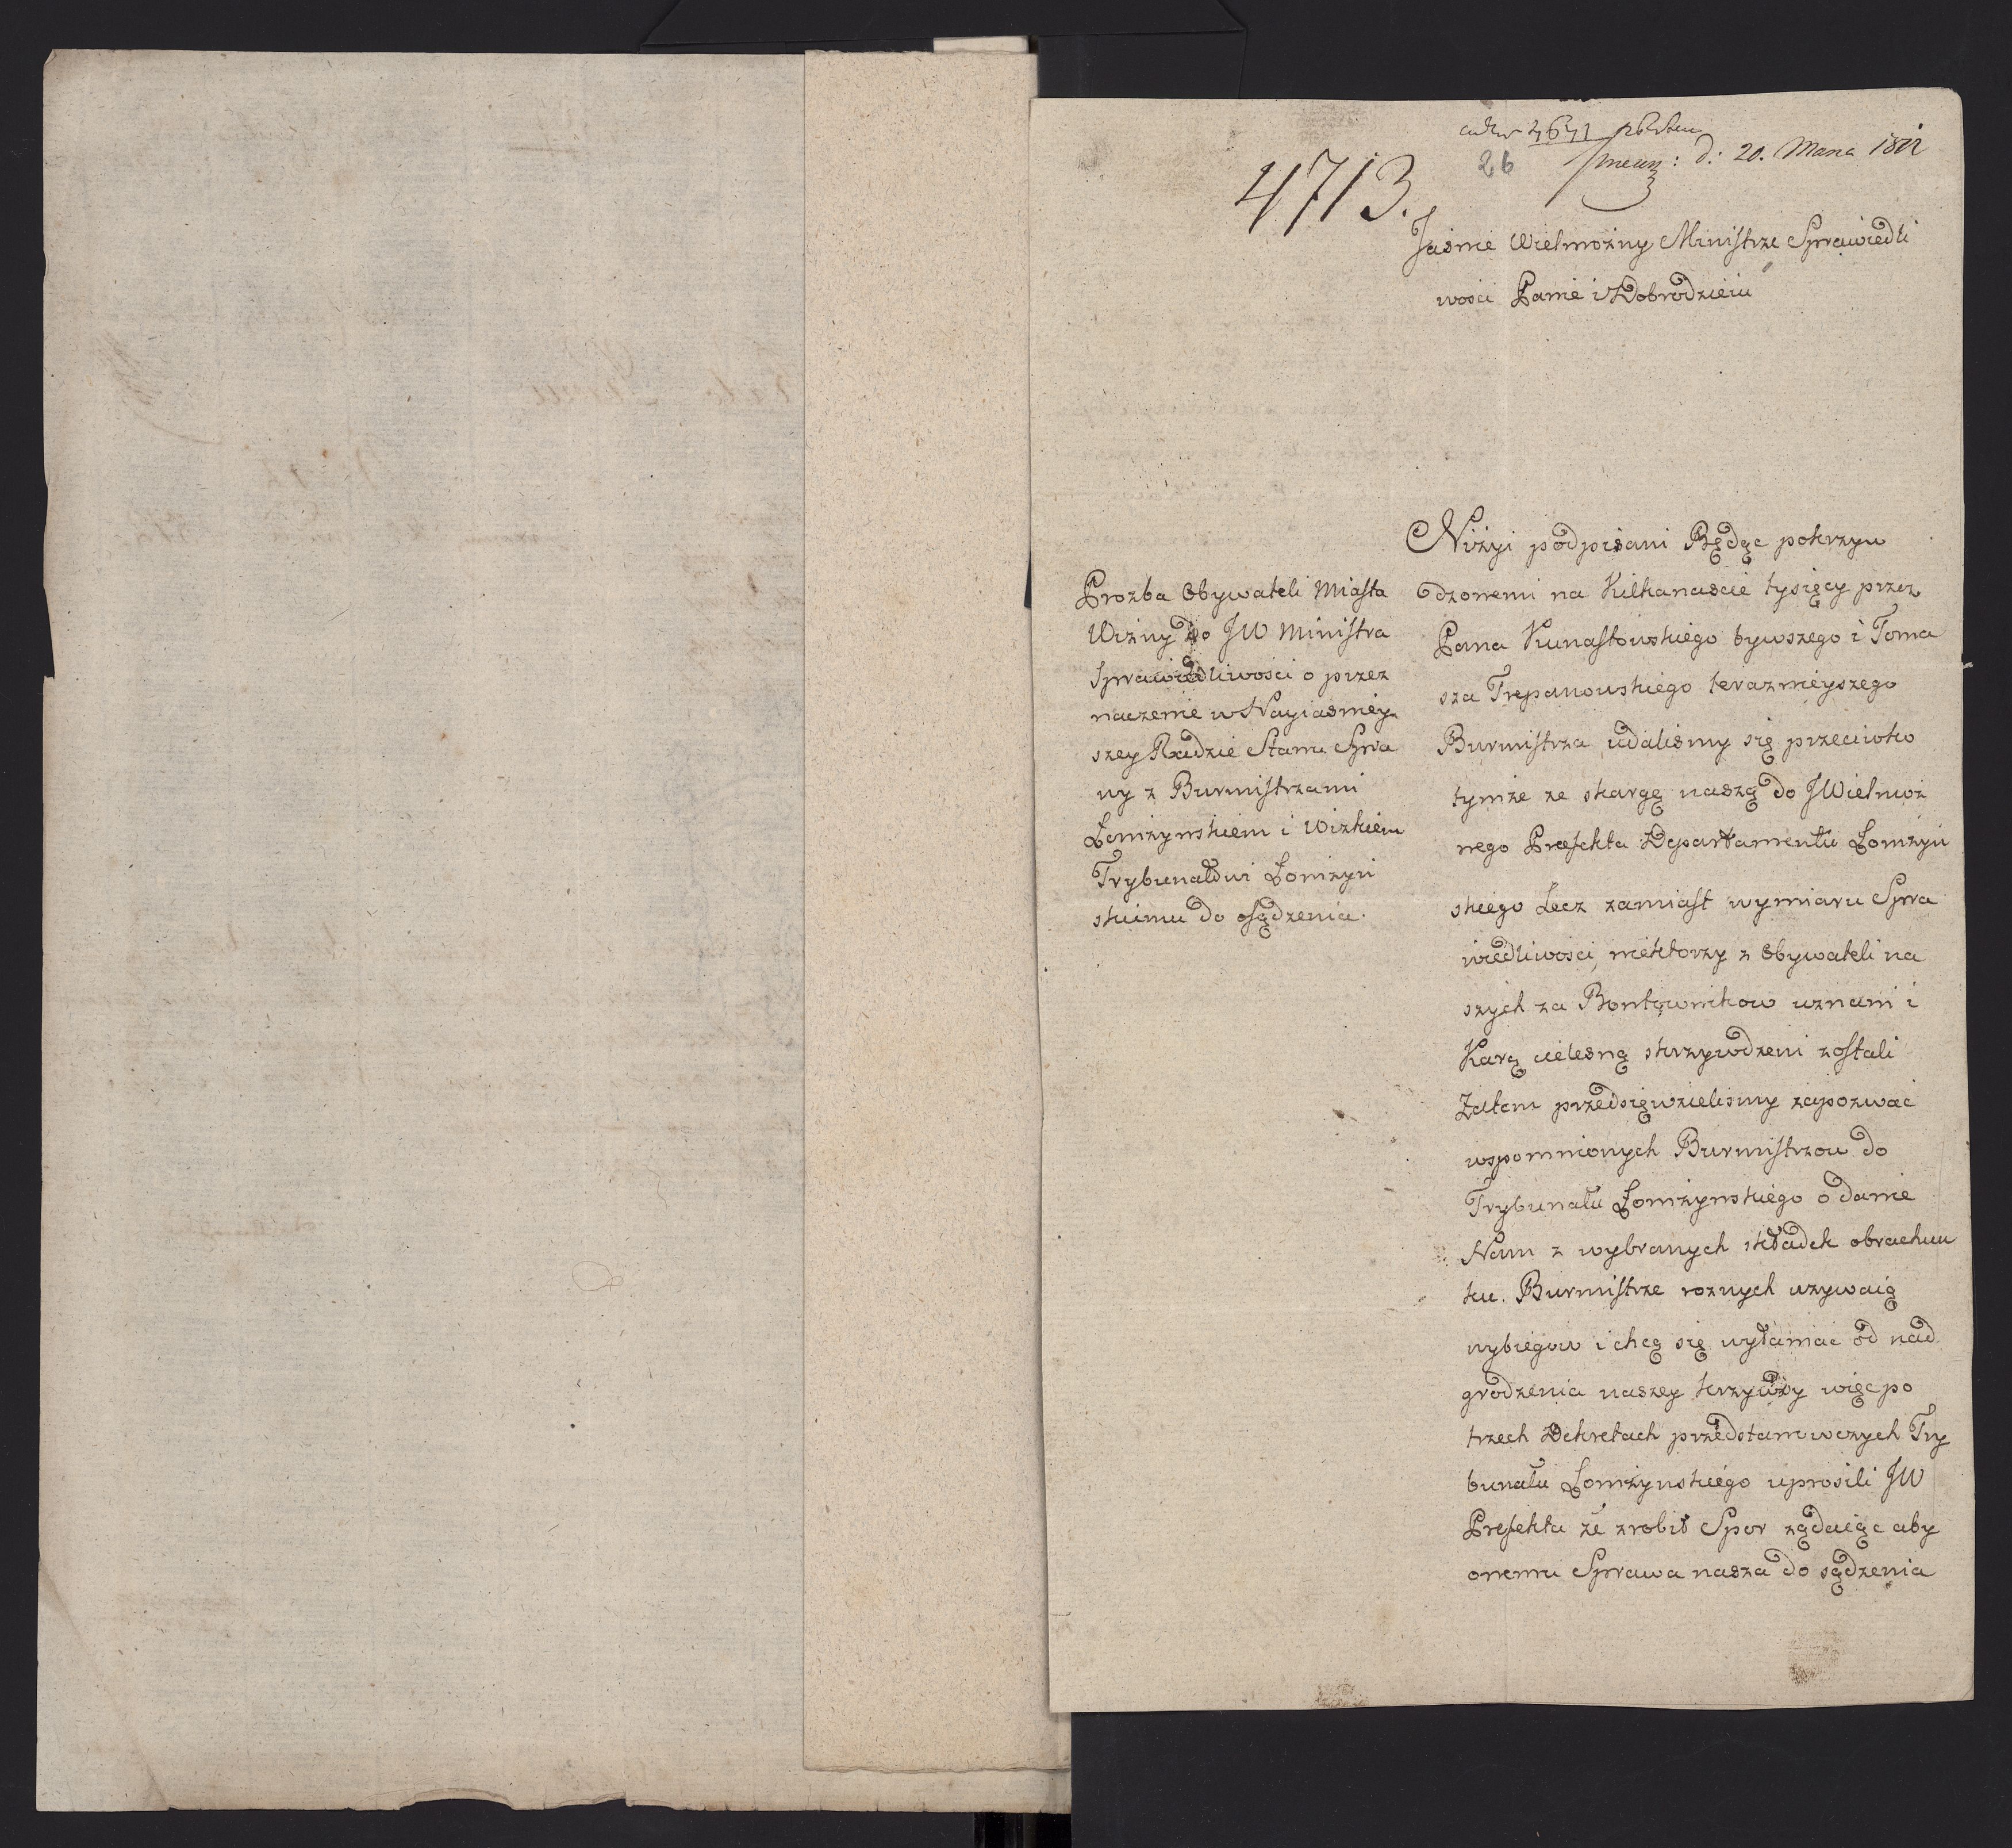 4713.
26
d: 20. Marca 1812
Jaśnie Wielmożny Ministrze Sprawiedli
wości Panie i Dobrodzieiu
Prozba Obywateli Miasta
Wizny do JW Ministra
Sprawiedliwości o przez
naczenie w Nayiasniey
szey Radzie Stanu Spra
wy z Burmistrzami
Łomżynskiem i Wizkiem
Trybunałowi Łomżyń
skiemu do osądzenia.
Niżyi podpisani Będąc pokrzyw
dzonemi na Kilkanascie tysięcy przez
Pana Kunastowskiego bywszego i Toma
sza Trepanowskiego terazmieyszego
Burmistrza udalismy się przeciwko
tymże ze skargą naszą do JWielmoż
nego Prefekta Departamentu Łomżyń
skiego Lecz zamiast wymiaru Spra
wiedliwosci, niektorzy z Obywateli na
szych za Bontowników uznani i
Karą cielesną skrzywdzeni zostali
Zatem przedsięwzielismy zapozwać
wspomnionych Burmistrzow do
Trybunału Łomżynskiego o danie
Nam z wybranych składek obrachun
ku. Burmistrze roznych uzywaią
wybiegow i chcą się wyłamac od nad
grodzenia naszey krzywdy więc po
trzech Dekretach przedstanowczych Try
bunału Łomżynskiego uprosili JW
Prefekta że zrobił Spor ządaiąc aby
onemu Sprawa nasza do sądzenia